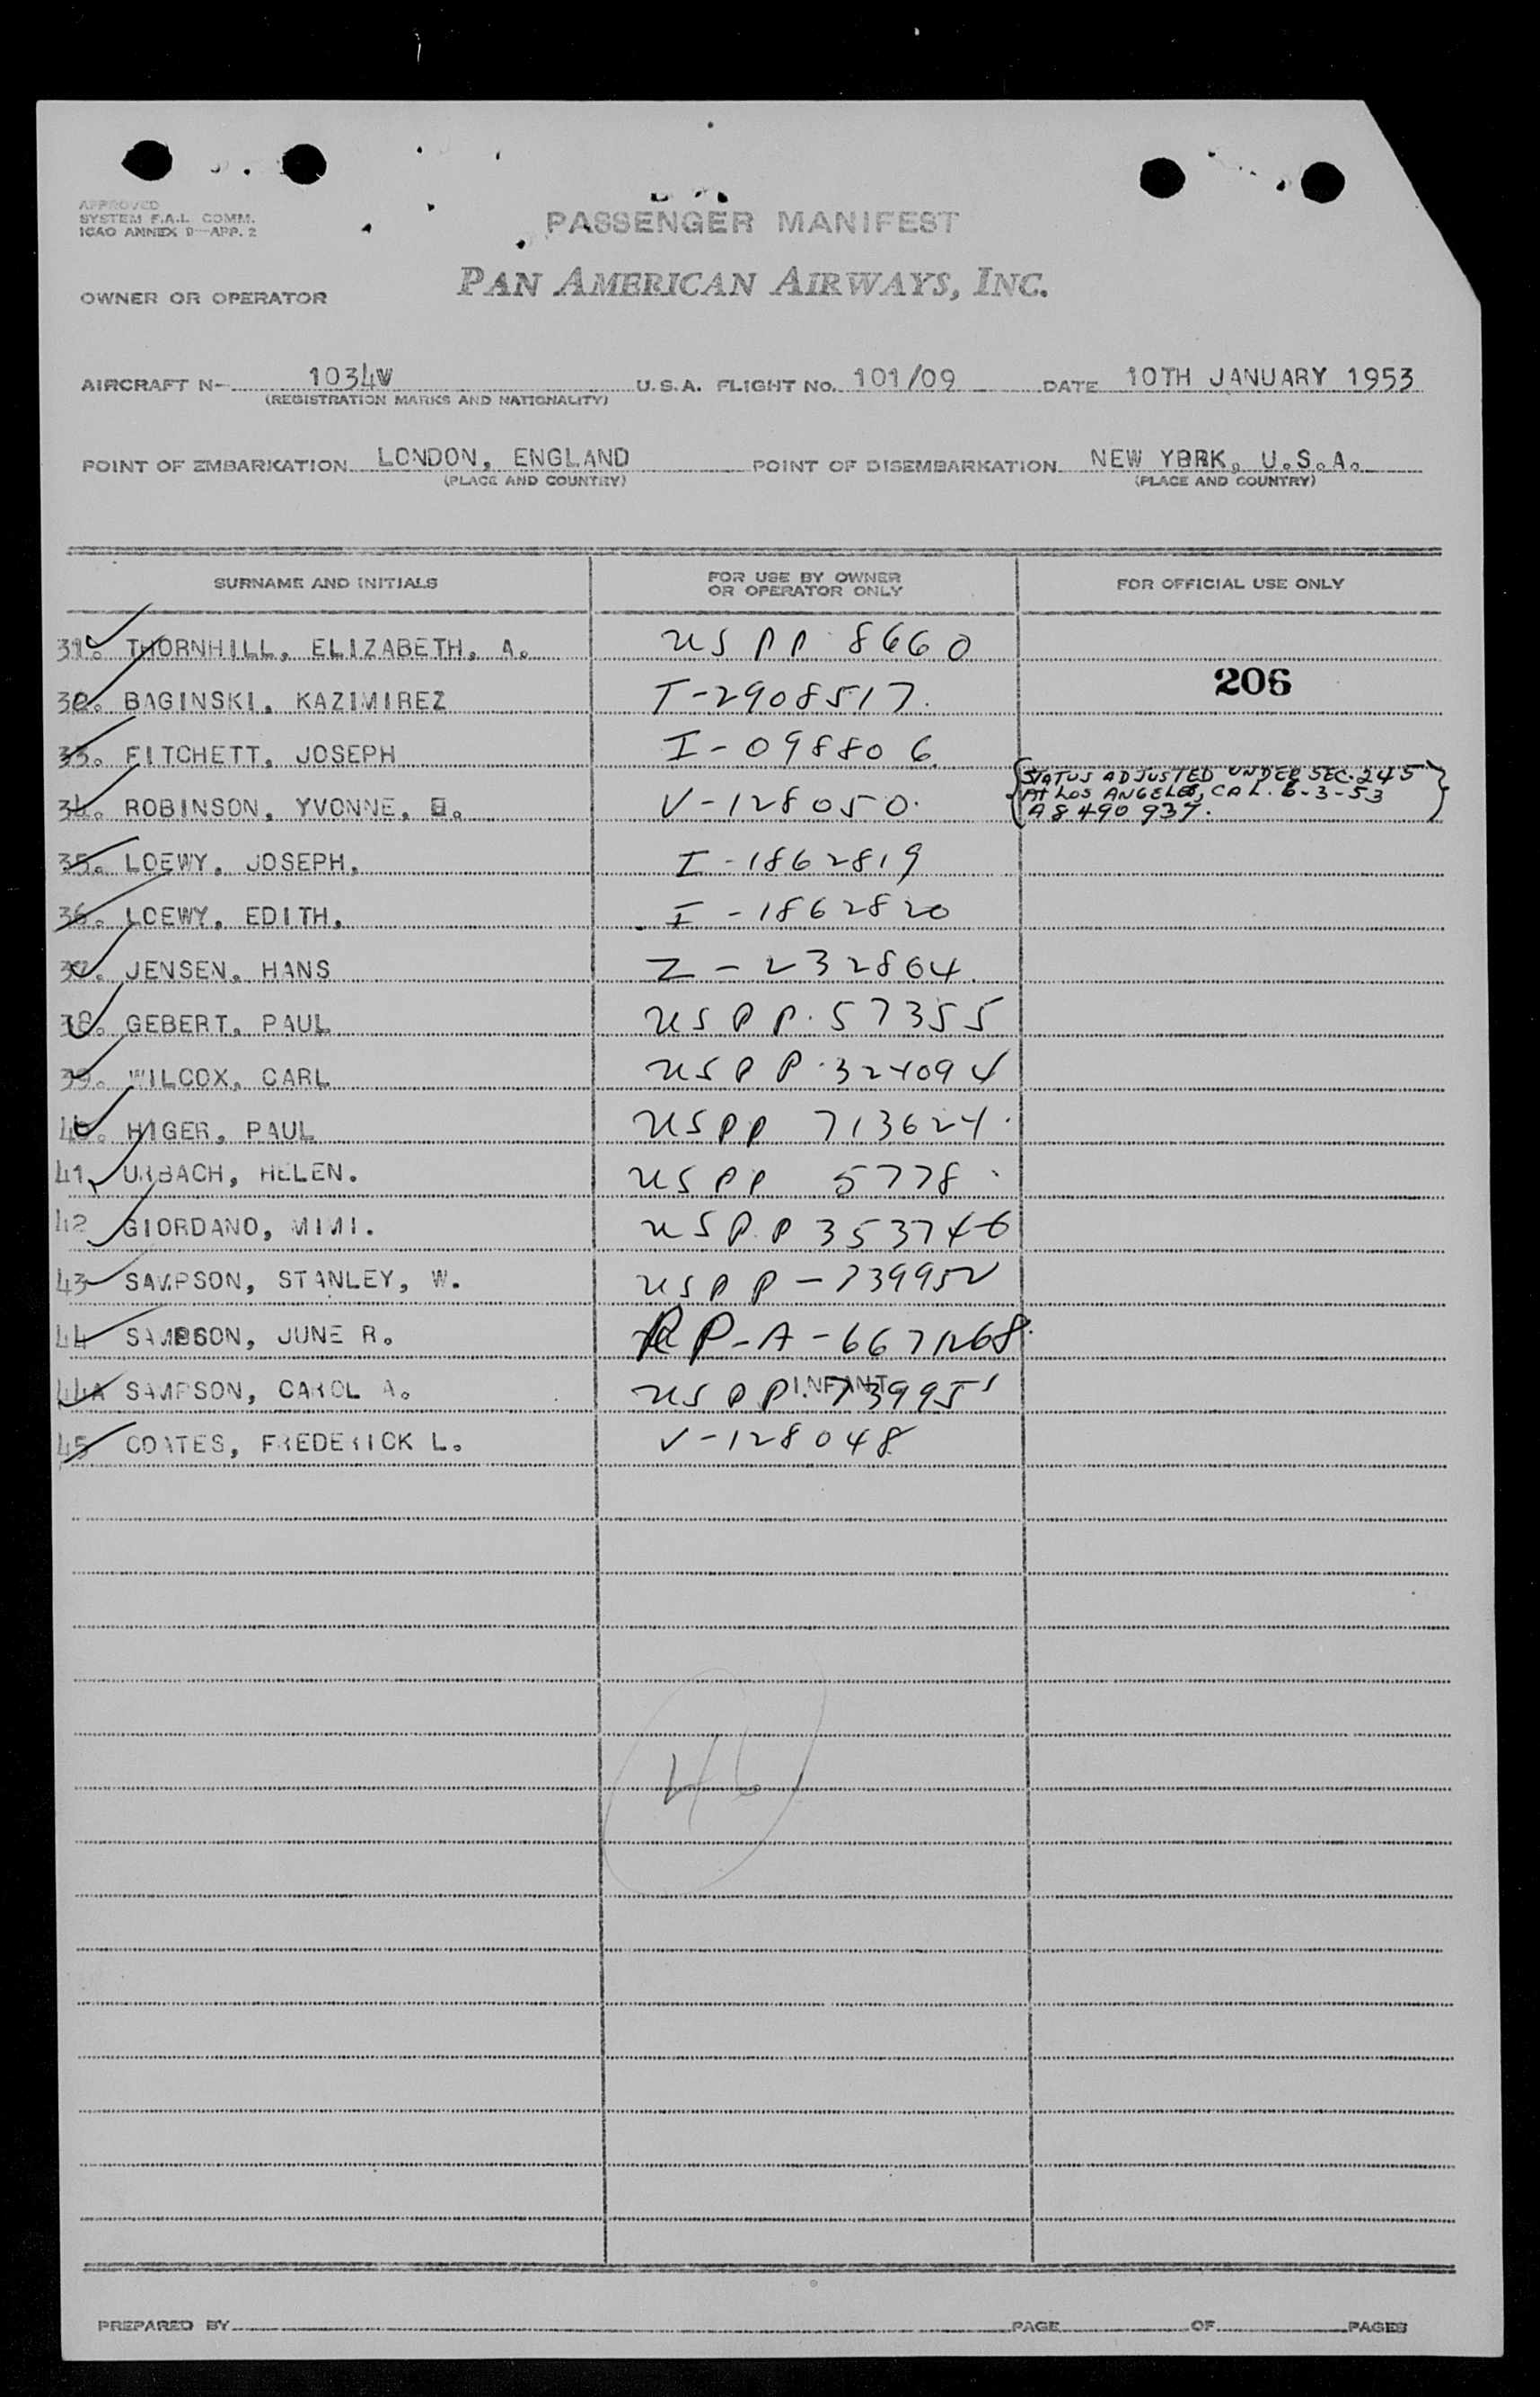 APPROVED
SYSTEM F.A.L. COMM.
ICAO ANNEX 9—APP. 2
PASSENGER MANIFEST
OWNER OR OPERATOR PAN AMERICAN AIRWAYS, INC.
AIRCRAFT N- 1034V U.S.A. FLIGHT NO. 101/09 DATE 10TH JANUARY 1953
(REGISTRATION MARKS AND NATIONALITY)
POINT OF EMBARKATION LONDON, ENGLAND POINT OF DISEMBARKATION NEW YORK, U.S.A.
(PLACE AND COUNTRY) (PLACE AND COUNTRY)
SURNAME AND INITIALS FOR USE BY OWNER OR OPERATOR ONLY FOR OFFICIAL USE ONLY
31. THORNHILL, ELIZABETH, A. US PP 8660
206
32. BAGINSKI, KAZIMIREZ T-2908517.
33. FITCHETT, JOSEPH I-098806
34. ROBINSON, YVONNE, V-128050. STATUS ADJUSTED UNDER SEC. 245
AT LOS ANGELES, CAL. 6-3-53
A8 490 937.
35. LOEWY, JOSEPH. I-1862819
36. LOEWY, EDITH. I-1862820
37. JENSEN, HANS I-232864
38. GEBERT, PAUL US PP. 57355
39. WILCOX, CARL US PP. 324094
40. HIGER, PAUL US PP 713624.
41. URBACH, HELEN. US PP 5778.
42 GIORDANO, MIMI. US PP 353746
43 SAMPSON, STANLEY, W. US PP-739952
44 SAMPSON, JUNE R. RP-A-
44A SAMPSON, CAROL A. INFANT
US PP. 739951
45 COATES, FREDERICK L. V-128048
46
PREPARED BY PAGE OF PAGES